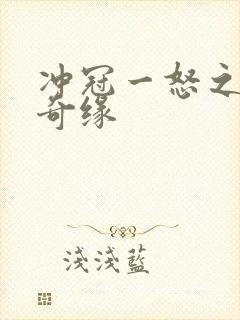 冲冠一怒之
奇缘
淺淺藍